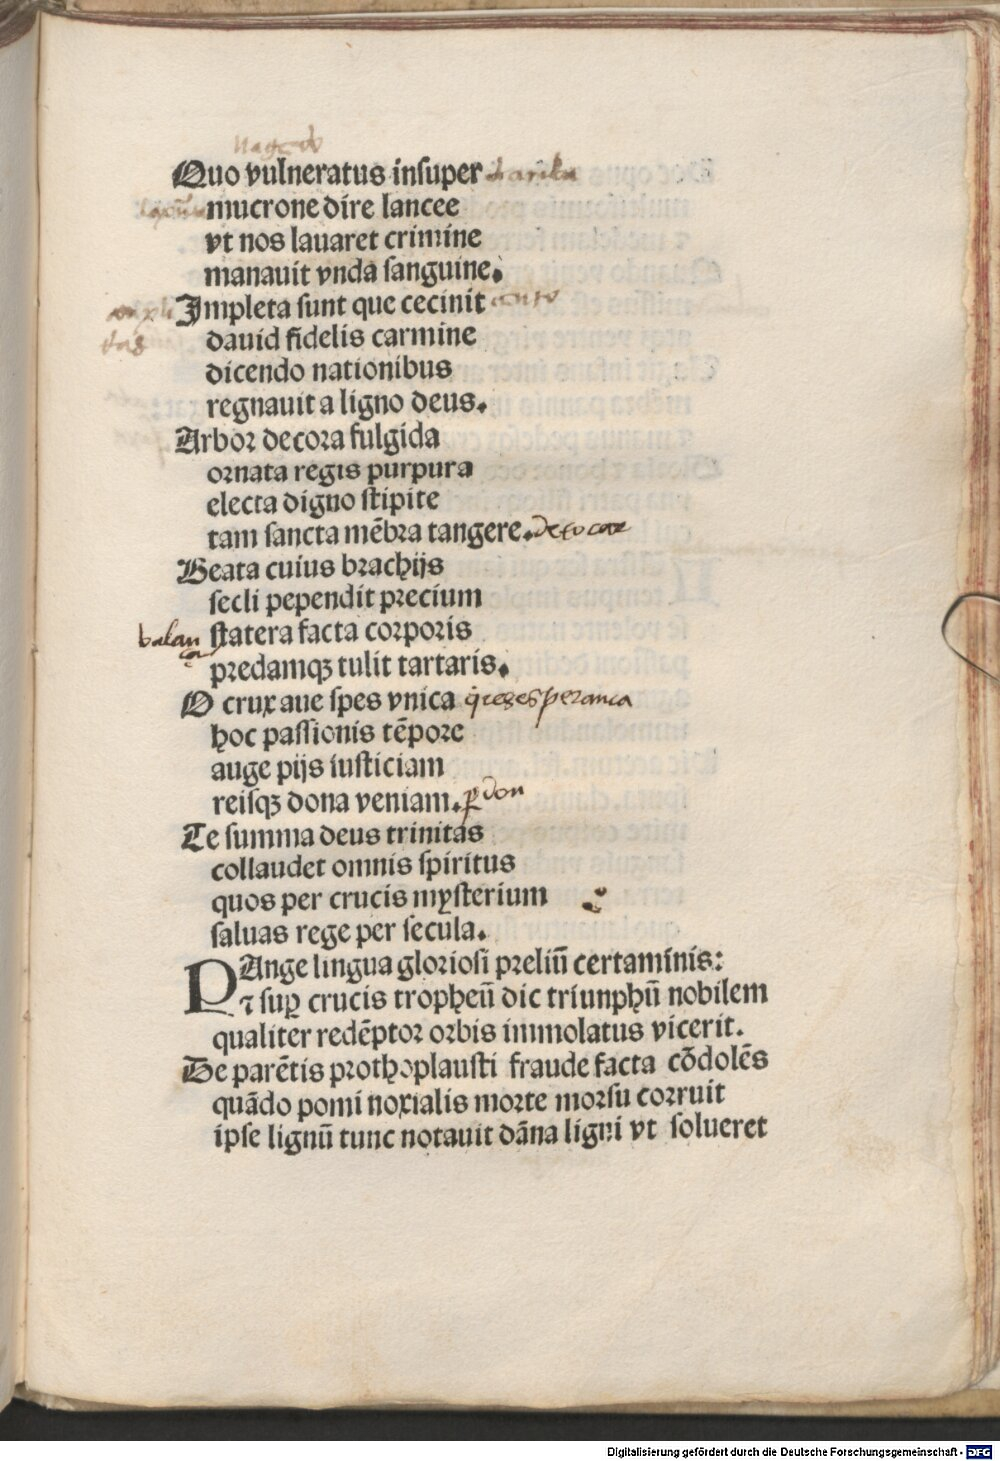 llagado
Quo vulneratus inſuper
mucrone dire lancee
vt nos lauaret crimine
manauit vnda ſanguine.
Impleta ſunt que cecinit canto
dauid fidelis carmine
dicendo nationibus
regnauit a ligno deus.
Arbor decora fulgida
ornata regis purpura
electa digno ſtipite
tam ſancta mẽbra tangere. de tocar
Beata cuius brachijs
ſecli pependit precium
balan
ça
ſtatera facta corporis
predamqꝫ tulit tartaris.
O crux aue ſpes vnica q̃ eres speranca
hoc paſſionis tẽpore
auge pijs iuſticiam
reiſqꝫ dona veniam. ꝑdon
Te ſumma deus trinitas
collaudet omnis ſpiritus
quos per crucis myſterium
ſaluas rege per ſecula.
PAnge lingua glorioſi preliũ certaminis:
⁊ suꝑ crucis tropheũ dic triunphũ nobilem
qualiter redẽptor orbis immolatus vicerit.
De parẽtis prothoplauſti fraude facta cõdolẽs
quãdo pomi noxialis morte morſu corruit
ipſe lignũ tunc notauit dãna ligni vt ſolueret
Digitalisierung gefördert durch die Deutsche Forschungsgemeinschaft - DFG